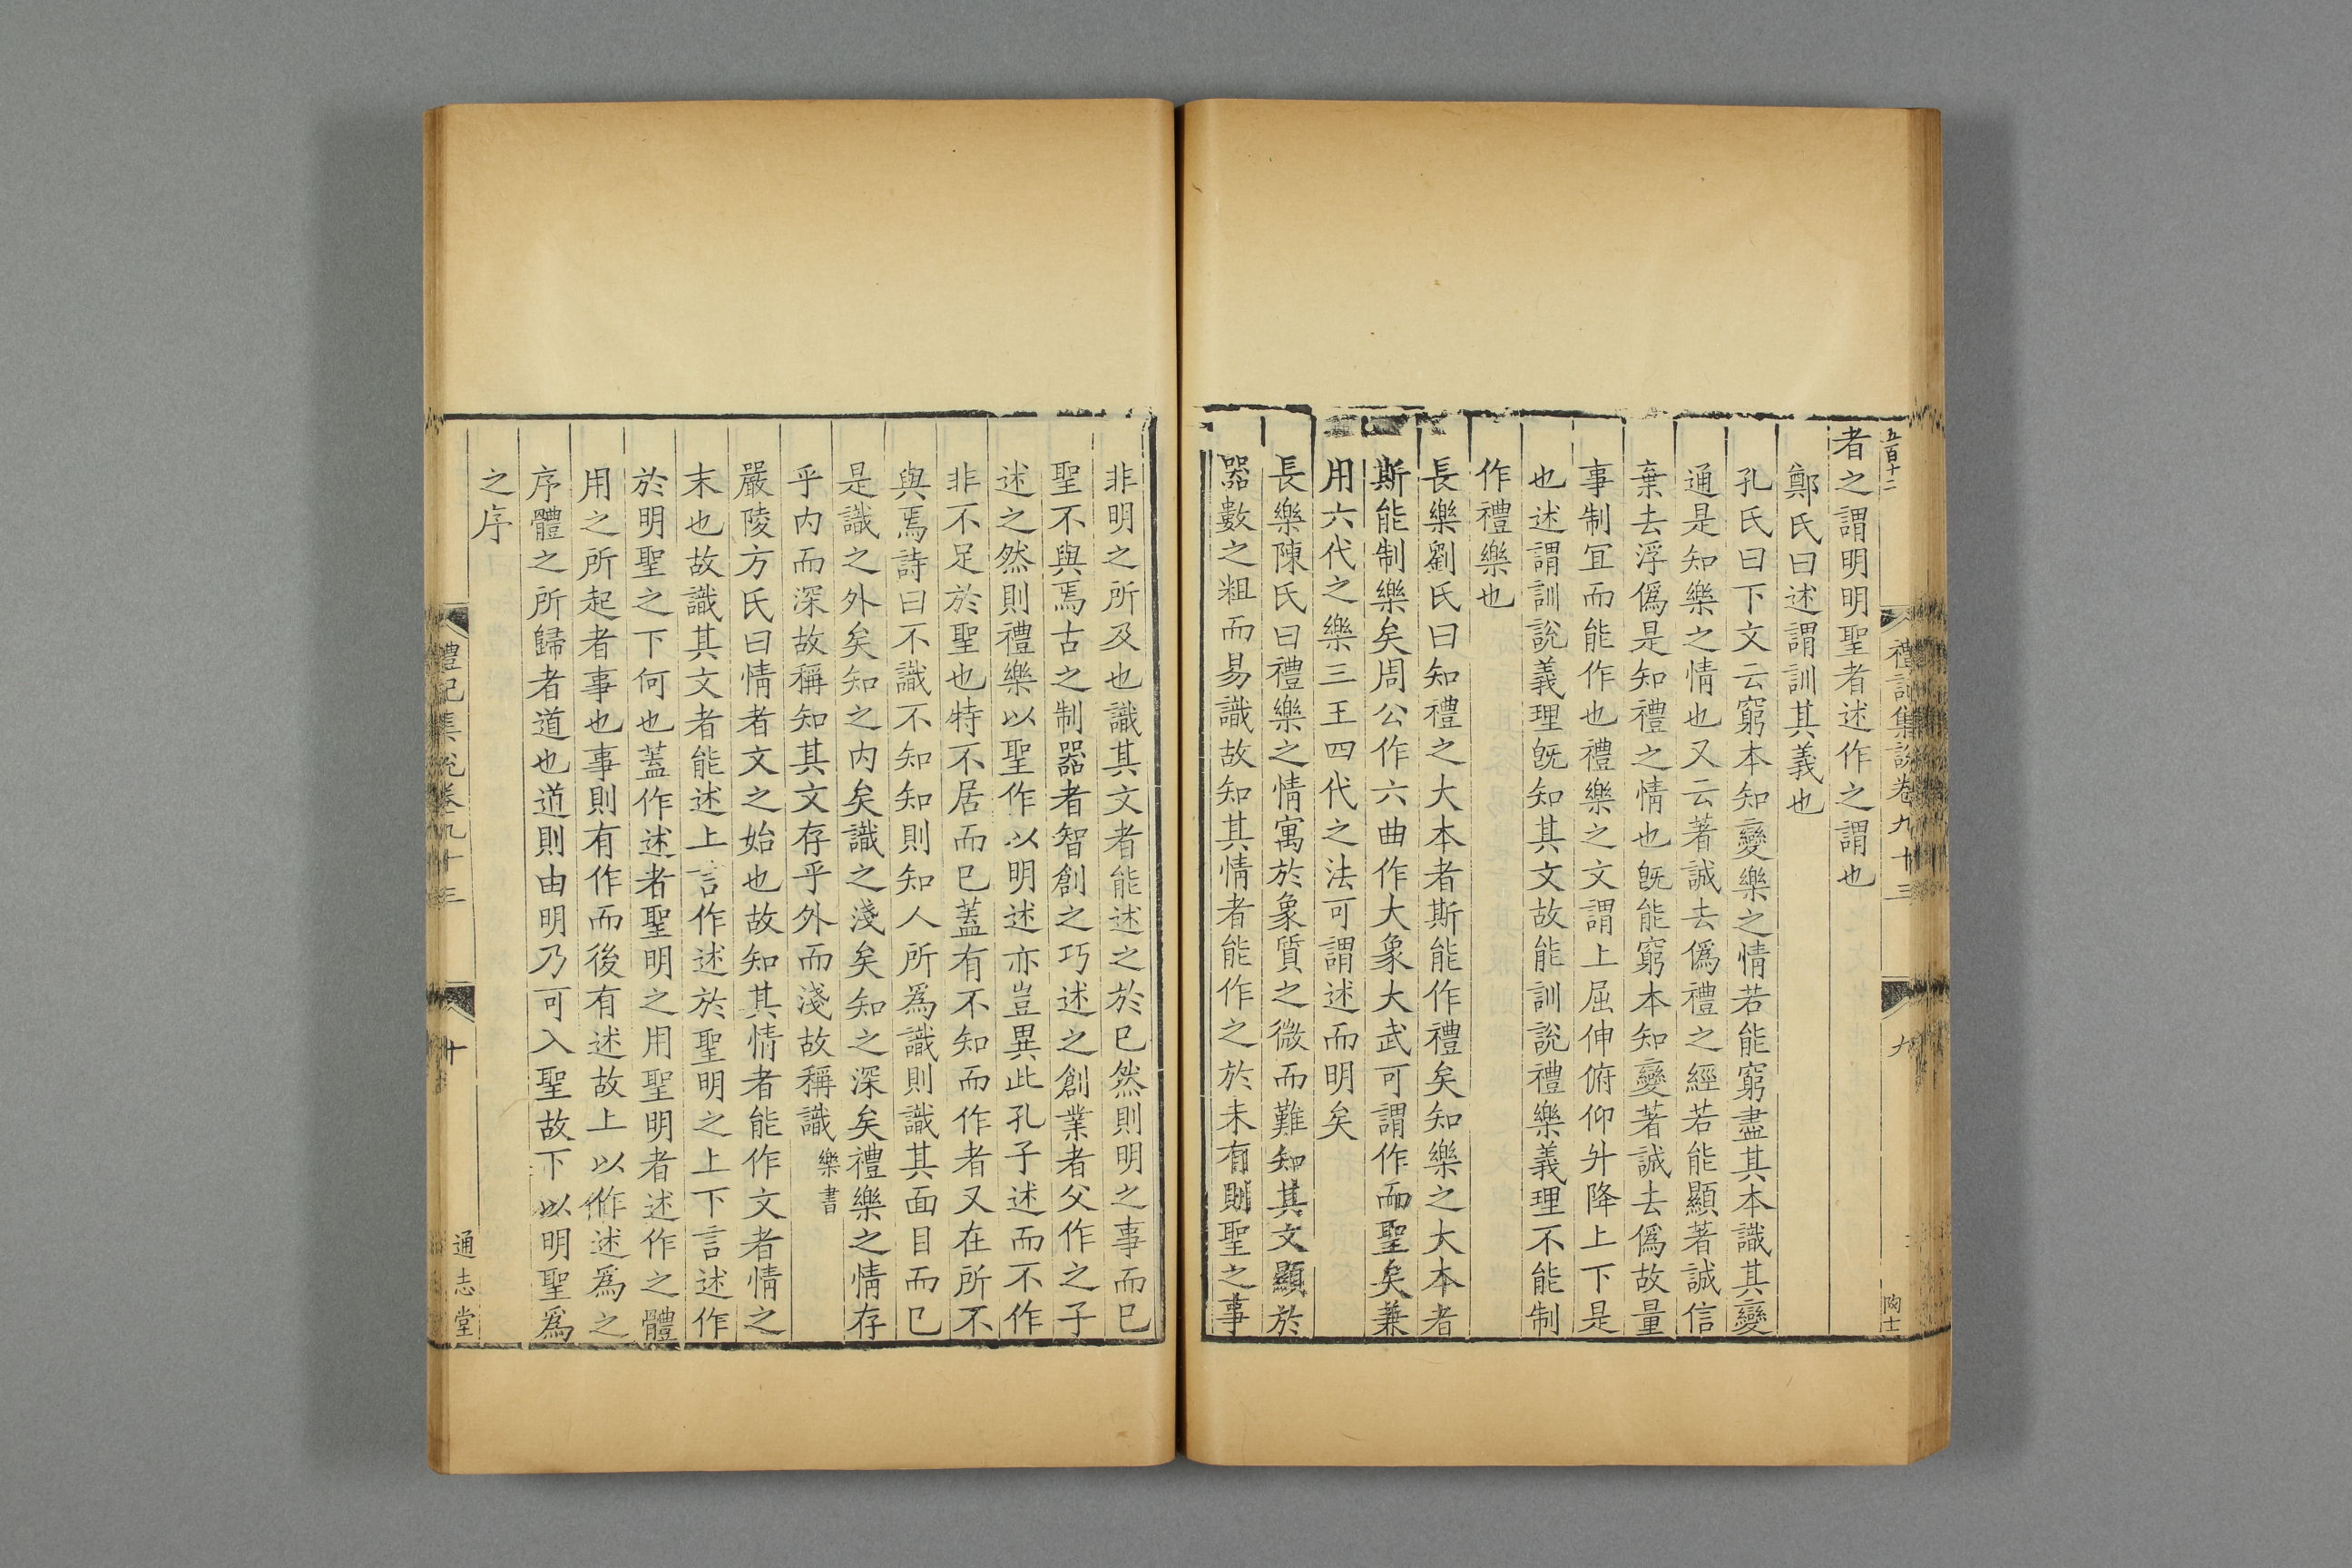 五百十二
禮記集說卷九十三
九
陶士
者之謂明明聖者述作之謂也
鄭氏曰述謂訓其義也
孔氏曰下文云窮本知變樂之情若能窮盡其本識其變
通是知樂之情也又云著誠去僞禮之經若能顯著誠信
棄去浮僞是知禮之情也旣能窮本知變著誠去僞故量
事制宜而能作也禮樂之文謂上屈伸俯仰升降上下是
也述謂訓說義理旣知其文故能訓說禮樂義理不能制
作禮樂也
長樂劉氏曰知禮之大本者斯能作禮矣知樂之大本者
斯能制樂矣周公作六曲作大象大武可謂作而聖矣兼
用六代之樂三王四代之法可謂述而明矣
長樂陳氏曰禮樂之情寓於象質之微而難知其文顯於
器數之粗而易識故知其情者能作之於未有則聖之事
非明之所及也識其文者能述之於已然則明之事而已
聖不與焉古之制器者智創之巧述之創業者父作之子
述之然則禮樂以聖作以明述亦豈異此孔子述而不作
非不足於聖也特不居而已蓋有不知而作者又在所不
與焉詩曰不識不知知則知人所爲識則識其面目而已
是識之外矣知之内矣識之淺矣知之深矣禮樂之情存
乎内而深故稱知其文存乎外而淺故稱識樂書
嚴陵方氏曰情者文之始也故知其情者能作文者情之
末也故識其文者能述上言作述於聖明之上下言述作
於明聖之下何也蓋作述者聖明之用聖明者述作之體
用之所起者事也事則有作而後有述故上以作述爲之
序體之所歸者道也道則由明乃可入聖故下以明聖爲
之序
禮記集說卷九十三
十
通志堂